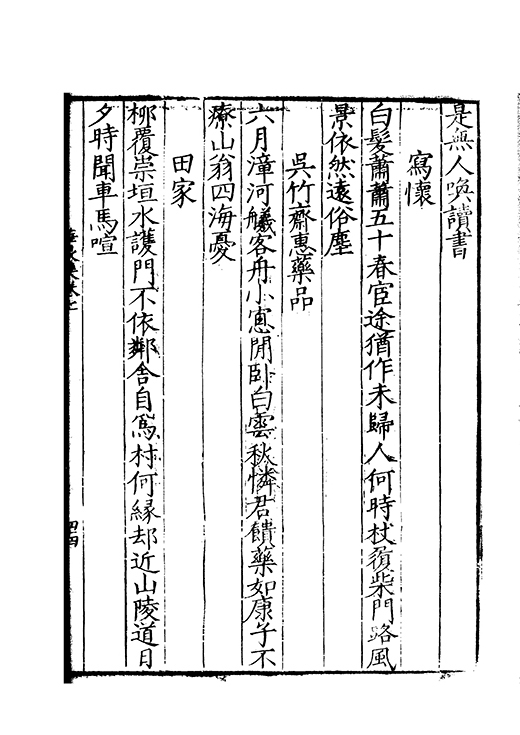 是無人喚讀書
寫懷
白髮蕭蕭五十春宦途猶作未歸人何時杖屨柴門路風
景依然遠俗塵
吳竹齋惠藥品
六月漳河艤客舟小窻閒臥白雲秋憐君饋藥如康子不
療山翁四海憂
田家
柳覆崇垣水護門不依鄰舍自爲村何緣却近山陵道日
夕時聞車馬喧